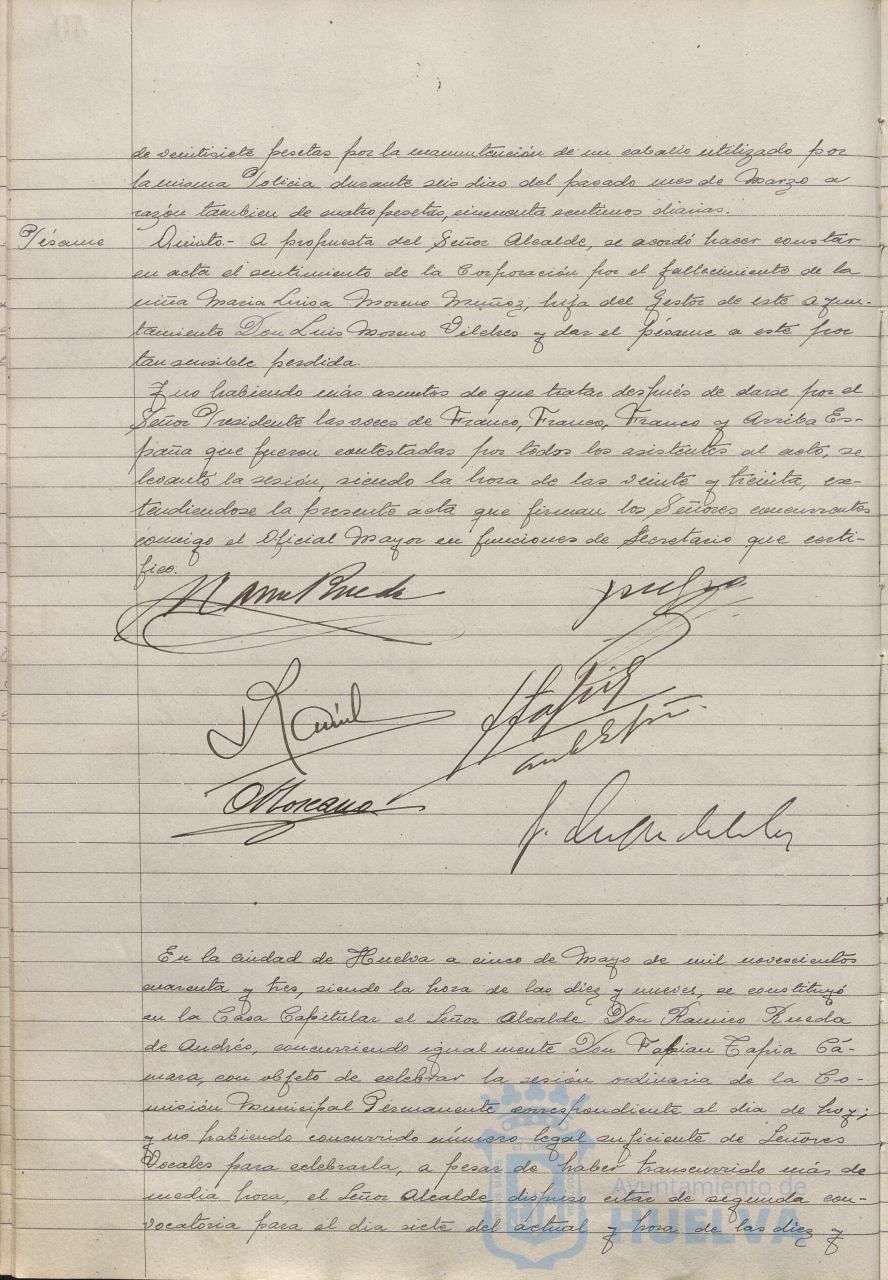 de veintisiete pesetas por la manutención de un caballo utilizado por
la misma Policia durante seis dias del pasado mes de Marzo a
razón tambien de cuatro pesetas, cincuenta centimos diarias.
Pésame
Quinto.- A propuesta del Señor Alcalde, se acordó hacer constar
en acta el sentimiento de la Corporación por el fallecimiento de la
niña Maria Luisa Moreno Muñoz, hija del Gestor de este Ayun-
tamiento Don Luis Moreno Vilches y dar el pésame a este por
tan sensible perdida.
Y no habiendo más asuntos de que tratar después de darse por el
Señor Presidente las voces de Franco, Franco, Franco y Arriba Es-
paña que fueron contestadas por todos los asistentes al acto, se
levantó la sesión, siendo la hora de las veinte y treinta, ex-
tendiendose la presente acta que firman los Señores concurrentes
comigo el Oficial Mayor en funciones de Secretario que certi-
fico.
En la ciudad de Huelva a cinco de Mayo de mil novescientos
cuarenta y tres, siendo la hora de las diez y nueves, se constituyó
en la Casa Capitular el Señor Alcalde Don Ramiro Rueda
de Andrés, concurriendo igualmente Don Fabian Tapia Cá-
mara, con objeto de celebrar la sesión ordinaria de la Co-
misión Municipal Permanente correspondiente al dia de hoy;
y no habiendo concurrido número legal suficiente de Señores
Vocales para celebrarla, a pesar de haber transcurrido más de
media hora, el Señor Alcalde dispuso citar de segunda con-
vocatoria para el dia siete del actual y hora de las diez y
Ayuntamiento de
HUELVA